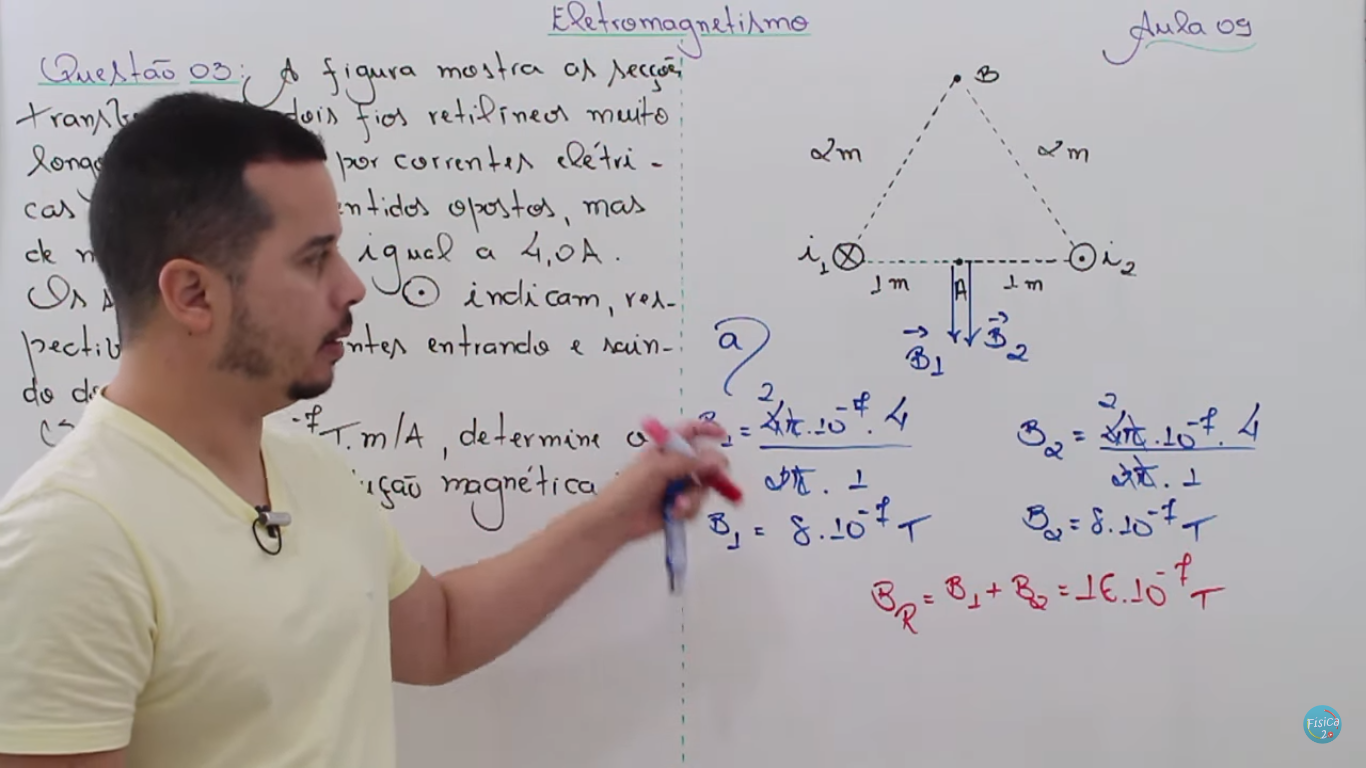 Eletromagnetismo
Aula 09
Questão 03: A figura mostra as secções
dois fios retilíneos muito
por correntes elétri-
cas opostos, mas
de igual a 4,0A.
Os ⊙ indicam, res-
entrando e sain-
do
-7 T.m/A, determine
magnética
B
2m
2m
i1 ⊗
⊙ i2
1m
A
1m
B⃗1
B⃗2
a)
B1 = 4π.10^-7.4 / 2π.1
2
B2 = 4π.10^-7.4 / 2π.1
2
B1 = 8.10^-7 T
B2 = 8.10^-7 T
BR = B1 + B2 = 16.10^-7 T
Física
2.0